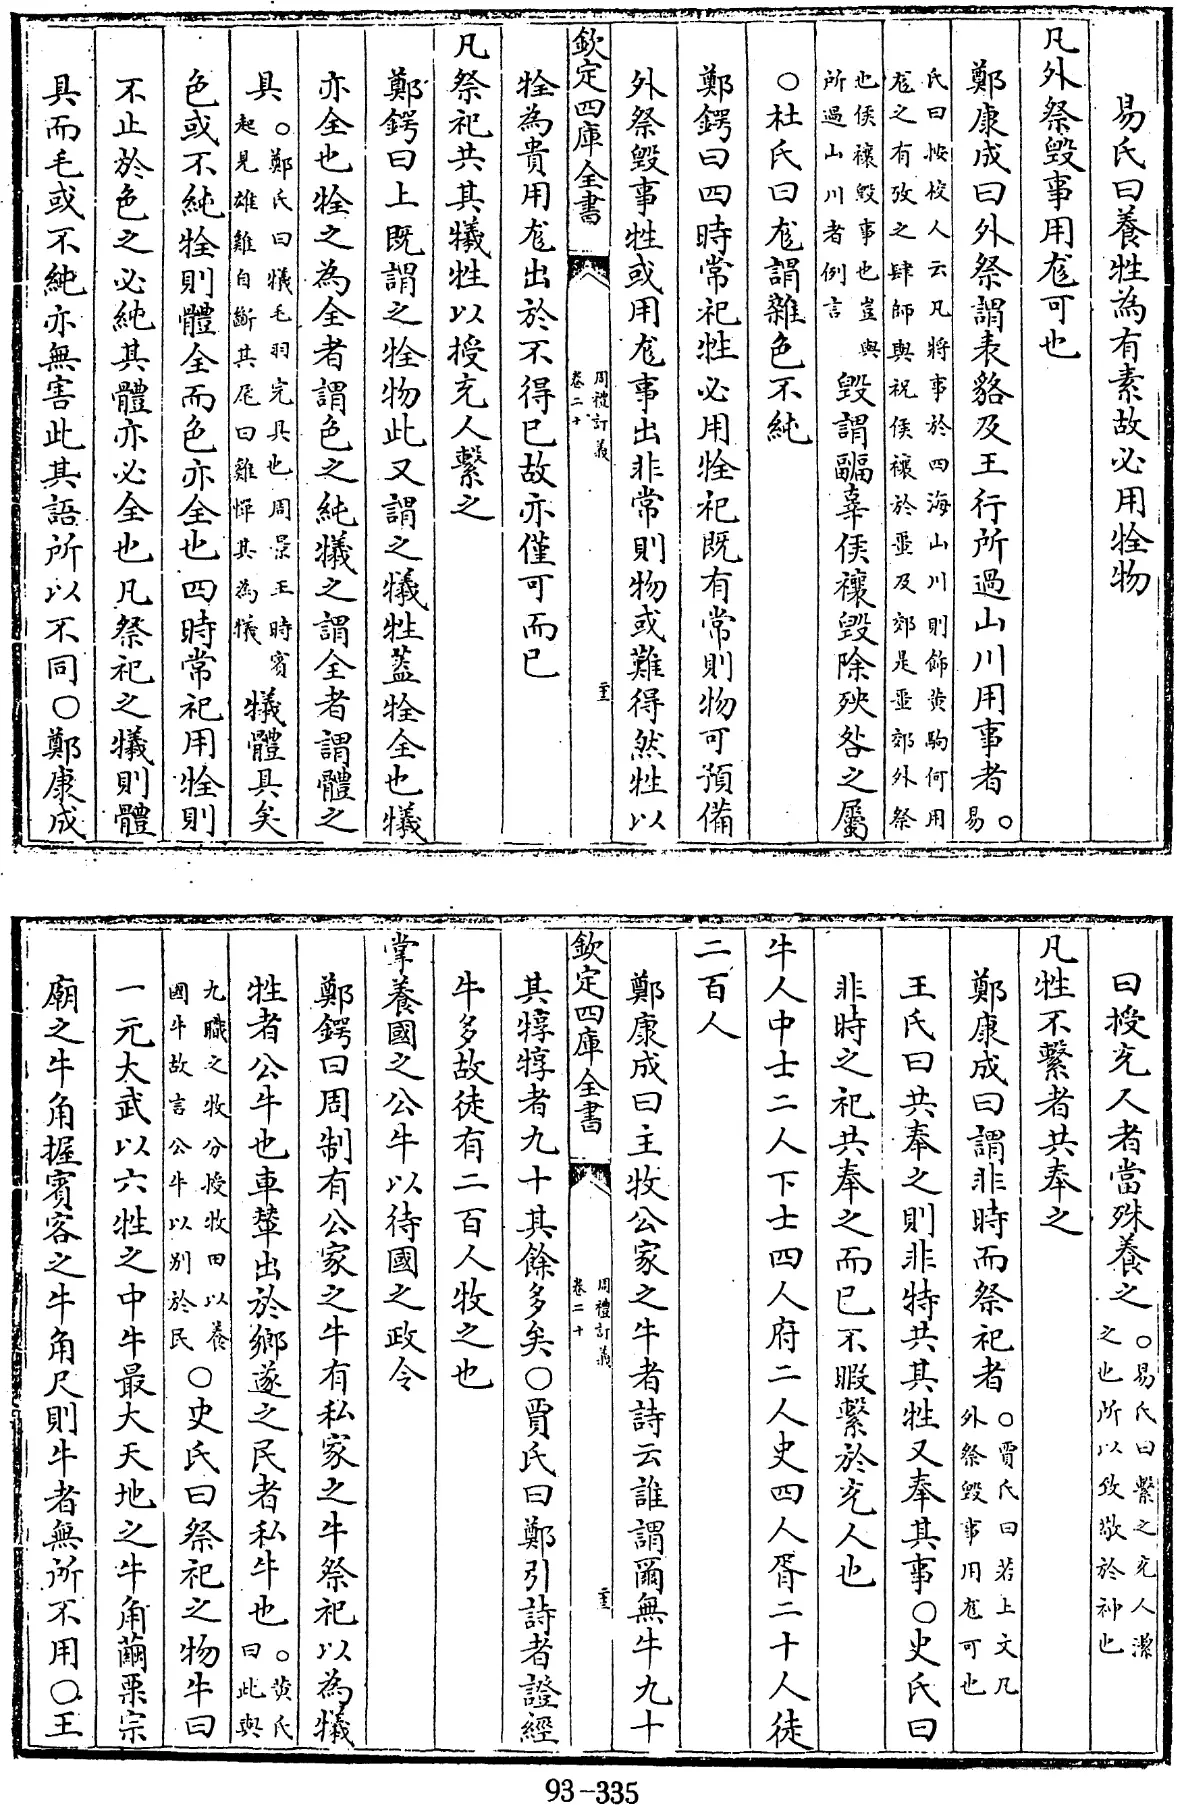 易氏曰養牲為有素故必用牷物
凡外祭毀事用尨可也
鄭康成曰外祭謂表貉及王行所過山川用事者〇易
氏曰按校人云凡將事於四海山川則飾黄駒何用
尨之有攷之肆師與祝侯禳於畺及郊是畺郊外祭
也侯禳毀事也豈與
所過山川者例言
毀謂副辜侯禳毀除殃咎之屬
〇杜氏曰尨謂雜色不純
鄭鍔曰四時常祀牲必用牷祀既有常則物可預備
外祭毀事牲或用尨事出非常則物或難得然牲以
欽定四庫全書
周禮訂義
卷二十
牷為貴用尨出於不得已故亦僅可而已
凡祭祀共其犧牲以授充人繫之
鄭鍔曰上既謂之牷物此又謂之犧牲葢牷全也犧
亦全也牷之為全者謂色之純犧之謂全者謂體之
具
〇鄭氏曰犧毛羽完具也周景王時賓
起見雄雞自斷其尾曰雞憚其為犧
犧體具矣
色或不純牷則體全而色亦全也四時常祀用牷則
不止於色之必純其體亦必全也凡祭祀之犧則體
具而毛或不純亦無害此其語所以不同〇鄭康成
曰授充人者當殊養之
〇易氏曰繫之充人潔
之也所以致敬於神也
凡牲不繫者共奉之
鄭康成曰謂非時而祭祀者
〇賈氏曰若上文凡
外祭毀事用尨可也
王氏曰共奉之則非特共其牲又奉其事〇史氏曰
非時之祀共奉之而已不暇繫於充人也
牛人中士二人下士四人府二人史四人胥二十人徒
二百人
鄭康成曰主牧公家之牛者詩云誰謂爾無牛九十
欽定四庫全書
周禮訂義
卷二十
其犉犉者九十其餘多矣〇賈氏曰鄭引詩者證經
牛多故徒有二百人牧之也
掌養國之公牛以待國之政令
鄭鍔曰周制有公家之牛有私家之牛祭祀以為犧
牲者公牛也車輦出於鄉遂之民者私牛也
〇黄氏
曰此與
九職之牧分授牧田以養
國牛故言公牛以别於民
〇史氏曰祭祀之物牛曰
一元大武以六牲之中牛最大天地之牛角繭栗宗
廟之牛角握賓客之牛角尺則牛者無所不用〇王
93-335